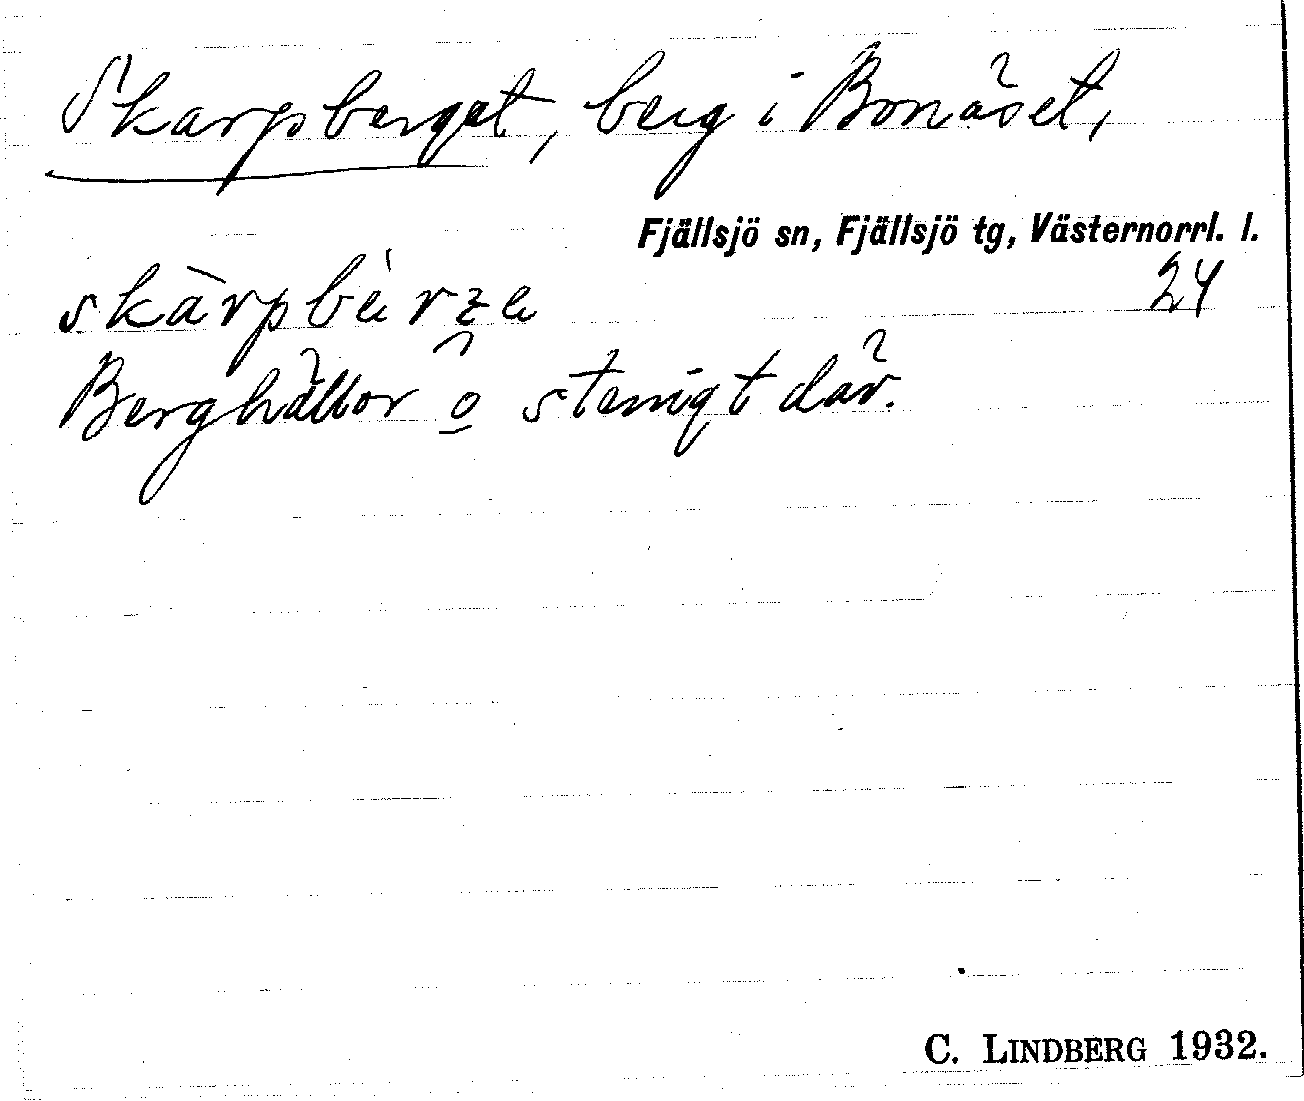 Skarpberget, berg i Bonäset,
Fjällsjö sn, Fjällsjö tg, Västernorrl. l.
24
Berghällor o stenigt där.
C. LINDBERG 1932.